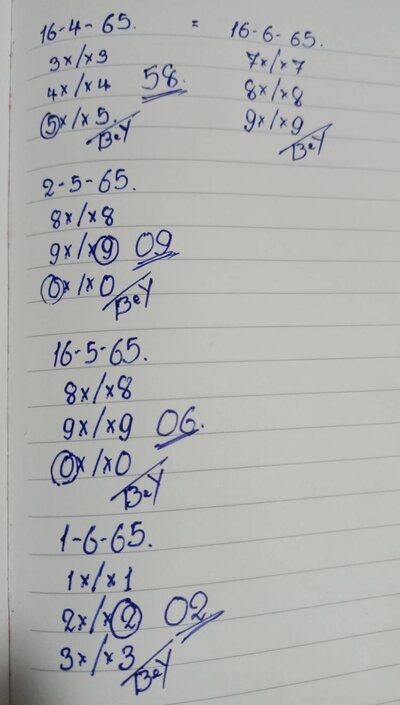 16-4-65.
3x/x3
4x/x4 58.
5x/x5.
BeY
= 16-6-65.
7x/x7
8x/x8
9x/x9
BeY
2-5-65.
8x/x8
9x/x9 09
0x/x0
BeY
16-5-65.
8x/x8
9x/x9 06.
0x/x0
BeY
1-6-65.
1x/x1
2x/x2 02
3x/x3
BeY